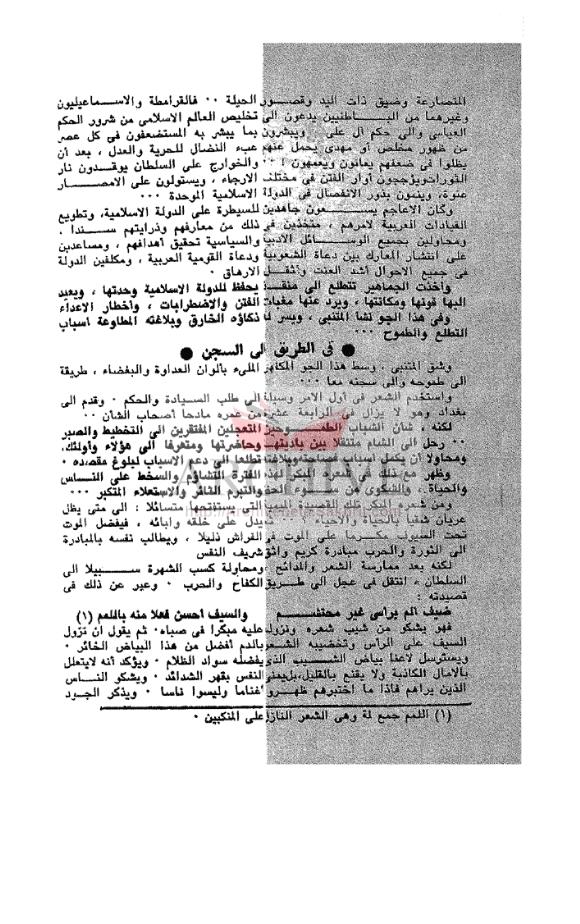 المتصارعة وضيق ذات اليد وقصور الحيلة ٠٠ فالقرامطة والاسماعيليون
وغيرهما من الباطنيين يدعون الى تخليص العالم الاسلامى من شرور الحكم
العباسى والى حكم آل على ويبشرون بما يبشر به المستضعفون فى كل عصر
من ظهور مخلص أو مهدى يحمل عنهم عبء النضال للحرية والعدل ، بعد أن
يظلوا فى ضعفهم يعانون ويعمهون ! ٠٠ والخوارج على السلطان يوقدون نار
الثورات ويؤججون أوار الفتن فى مختلف الارجاء ، ويستولون على الامصار
عنوة ، وينمون بذور الانفصال فى الدولة الاسلامية الموحدة ٠٠٠
وكان الاعاجم يسعون جاهدين للسيطرة على الدولة الاسلامية، وتطويع
القيادات العربية لامرهم ، متخذين فى ذلك من معارفهم وذرايتهم سندا ،
ومحاولين بجميع الوسائل الادبية والسياسية تحقيق أهدافهم ، ومساعدين
على انتشار المعارك بين دعاة الشعوبية ودعاة القومية العربية ، ومكلفين الدولة
فى جميع الاحوال أشد العنت وأثقل الارهاق ٠
وأخذت الجماهير تتطلع الى منقذ يحفظ للدولة الاسلامية وحدتها ، ويعيد
اليها قوتها ومكانتها ، ويرد عنها مغبات الفتن والاضطرابات ، وأخطار الاعداء
وفى هذا الجو نشأ المتنبى ، ويسر له ذكاؤه الخارق وبلاغته المطاوعة أسباب
التطلع والطموح ٠٠٠
● فى الطريق الى السجن ●
وشق المتنبى ، وسط هذا الجو المكفهر الملىء بألوان العداوة والبغضاء ، طريقة
الى طموحه والى سجنه معا ٠٠٠
واستخدم الشعر فى أول الامر وسيلة الى طلب السيادة والحكم ٠ وقدم الى
بغداد وهو لا يزال فى الرابعة عشرة من عمره مادحا أصحاب الشأن ٠٠
لكنه ، شأن الشباب الطموحين المتعجلين المفتقرين الى التخطيط والصبر
٠٠ رحل الى الشام متنقلا بين باديتها وحاضرتها ومتعرفا الى هؤلاء وأولئك،
ومحاولا أن يكمل أسباب فصاحته وبلاغته تطلعا الى دعم الاسباب لبلوغ مقصده ٠
وظهر مع ذلك فى شعره المبكر لهذه الفترة التشاؤم والسخط على الناس
والحياة ، والشكوى من سوء الحظ والتبرم الثائر والاستعلاء المتكبر ٠٠٠
ومن شعره المبكر تلك القصيدة الميمية التى يستفتحها متسائلا : الى متى يظل
عريان شقيا بالحياة والاحياء ٠٠٠ يدل على خلقه وابائه ، فيفضل الموت
تحت السيوف مكرما على الموت فى الفراش ذليلا ، ويطالب نفسه بالمبادرة
الى الثورة والحرب مبادرة كريم واثق شريف النفس
لكنه بعد ممارسة الشعر والمدائح ، ومحاولة كسب الشهرة سبيلا الى
السلطان ، انتقل فى عجل الى طريق الكفاح والحرب ٠ وعبر عن ذلك فى
قصيدته :
ضيف ألم برأسى غير محتشم والسيف أحسن فعلا منه باللمم (١)
فهو يشكو من شيب شعره ونزوله عليه مبكرا فى صباه، ثم يقول ان نزول
السيف على الرأس وتخضيبه الشعر بالدم أفضل من هذا البياض الخائر ٠
ويسترسل لاعنا بياض الشيب الذى يفضله سواد الظلام ٠ ويؤكد أنه لايتعلل
بالآمال الكاذبة ولا يقنع بالقليل،بل يعنى النفس بقهر الشدائد ٠ ويشكو الناس
الذين يراهم فاذا ما اختبرهم ظهروا أغناما وليسوا ناسا ٠ ويذكر الجود
(١) اللمم جمع لمة وهى الشعر النازل على المنكبين ٠
ARCHIVE